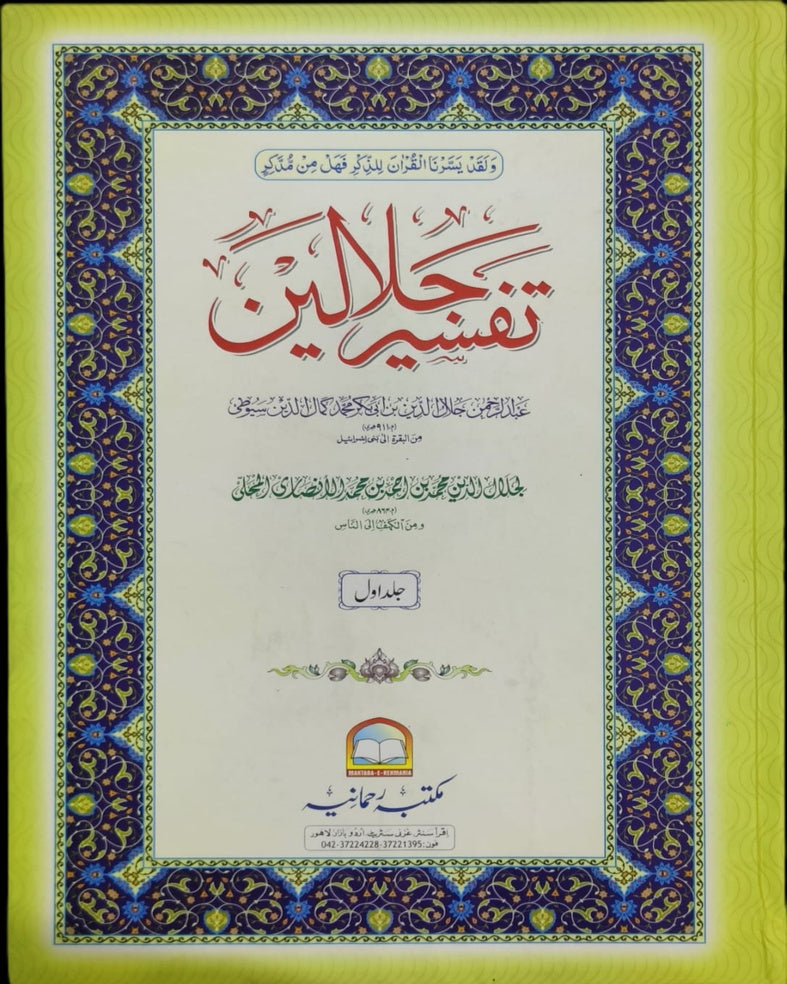 وَلَقَدْ يَسَّرْنَا الْقُرْاٰنَ لِلذِّكْرِ فَهَلْ مِنْ مُّدَّكِرٍ
تفسير جلالين
عبدالرحمن جلال الدين بن ابى بكر محمد كمال الدين سيوطى
(م ۹۱۱ ھجری)
مِنَ البقرة الى بنى اسرائيل
لجلال الدين محمد بن احمد بن محمد الأنصارى المحلى
(م ۸۶۴ ھجری)
ومِنَ الكهف الى الناس
جلد اول
MAKTABA-E-REHMANIA
مکتبہ رحمانیہ
اقرأ سنٹر غزنی سٹریٹ اردو بازار لاهور
فون: 37221395-37224228-042